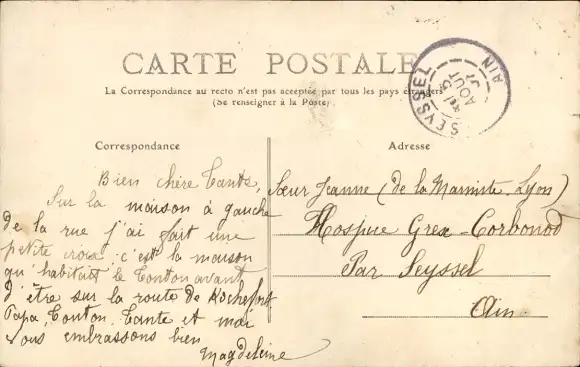 CARTE POSTALE
La Correspondance au recto n'est pas acceptée par tous les pays étrangers
(Se renseigner à la Poste)
SEYSSEL
AOUT
AIN
Correspondance
Bien chère Tante,
Sur la maison à gauche
de la rue j'ai fait une
petite croix; c'est la maison
qu'habitait le Tonton avant
d'être sur la route de Rochefort
Papa, Tonton, Tante et moi
vous embrassons bien
Magdeleine
Adresse
Sœur Jeanne (de la Lyon)
Hospice Grex-Corbonod
Par Seyssel
Ain